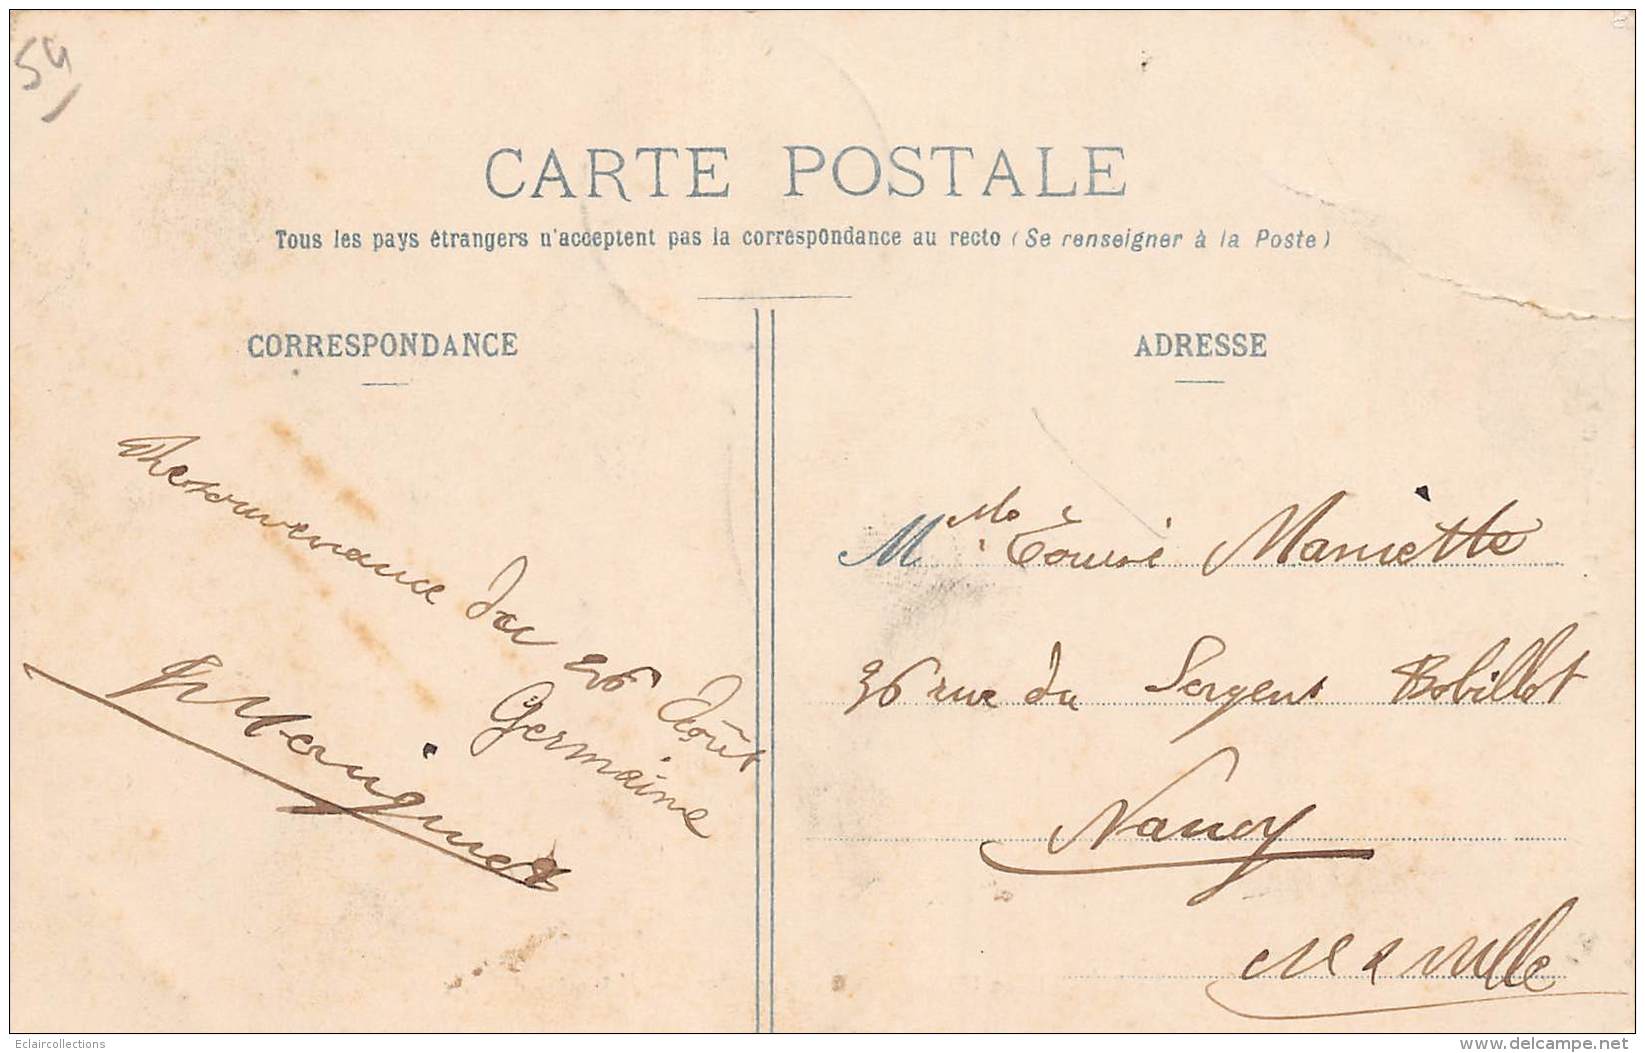 54
CARTE POSTALE
Tous les pays étrangers n'acceptent pas la correspondance au recto (Se renseigner à la Poste)
CORRESPONDANCE
du 26 Août
Germaine
ADRESSE
Mlle Mariette
36 rue du Sergent Bobillot
Nancy
M & Mlle
Eclaircollections
www.delcampe.net